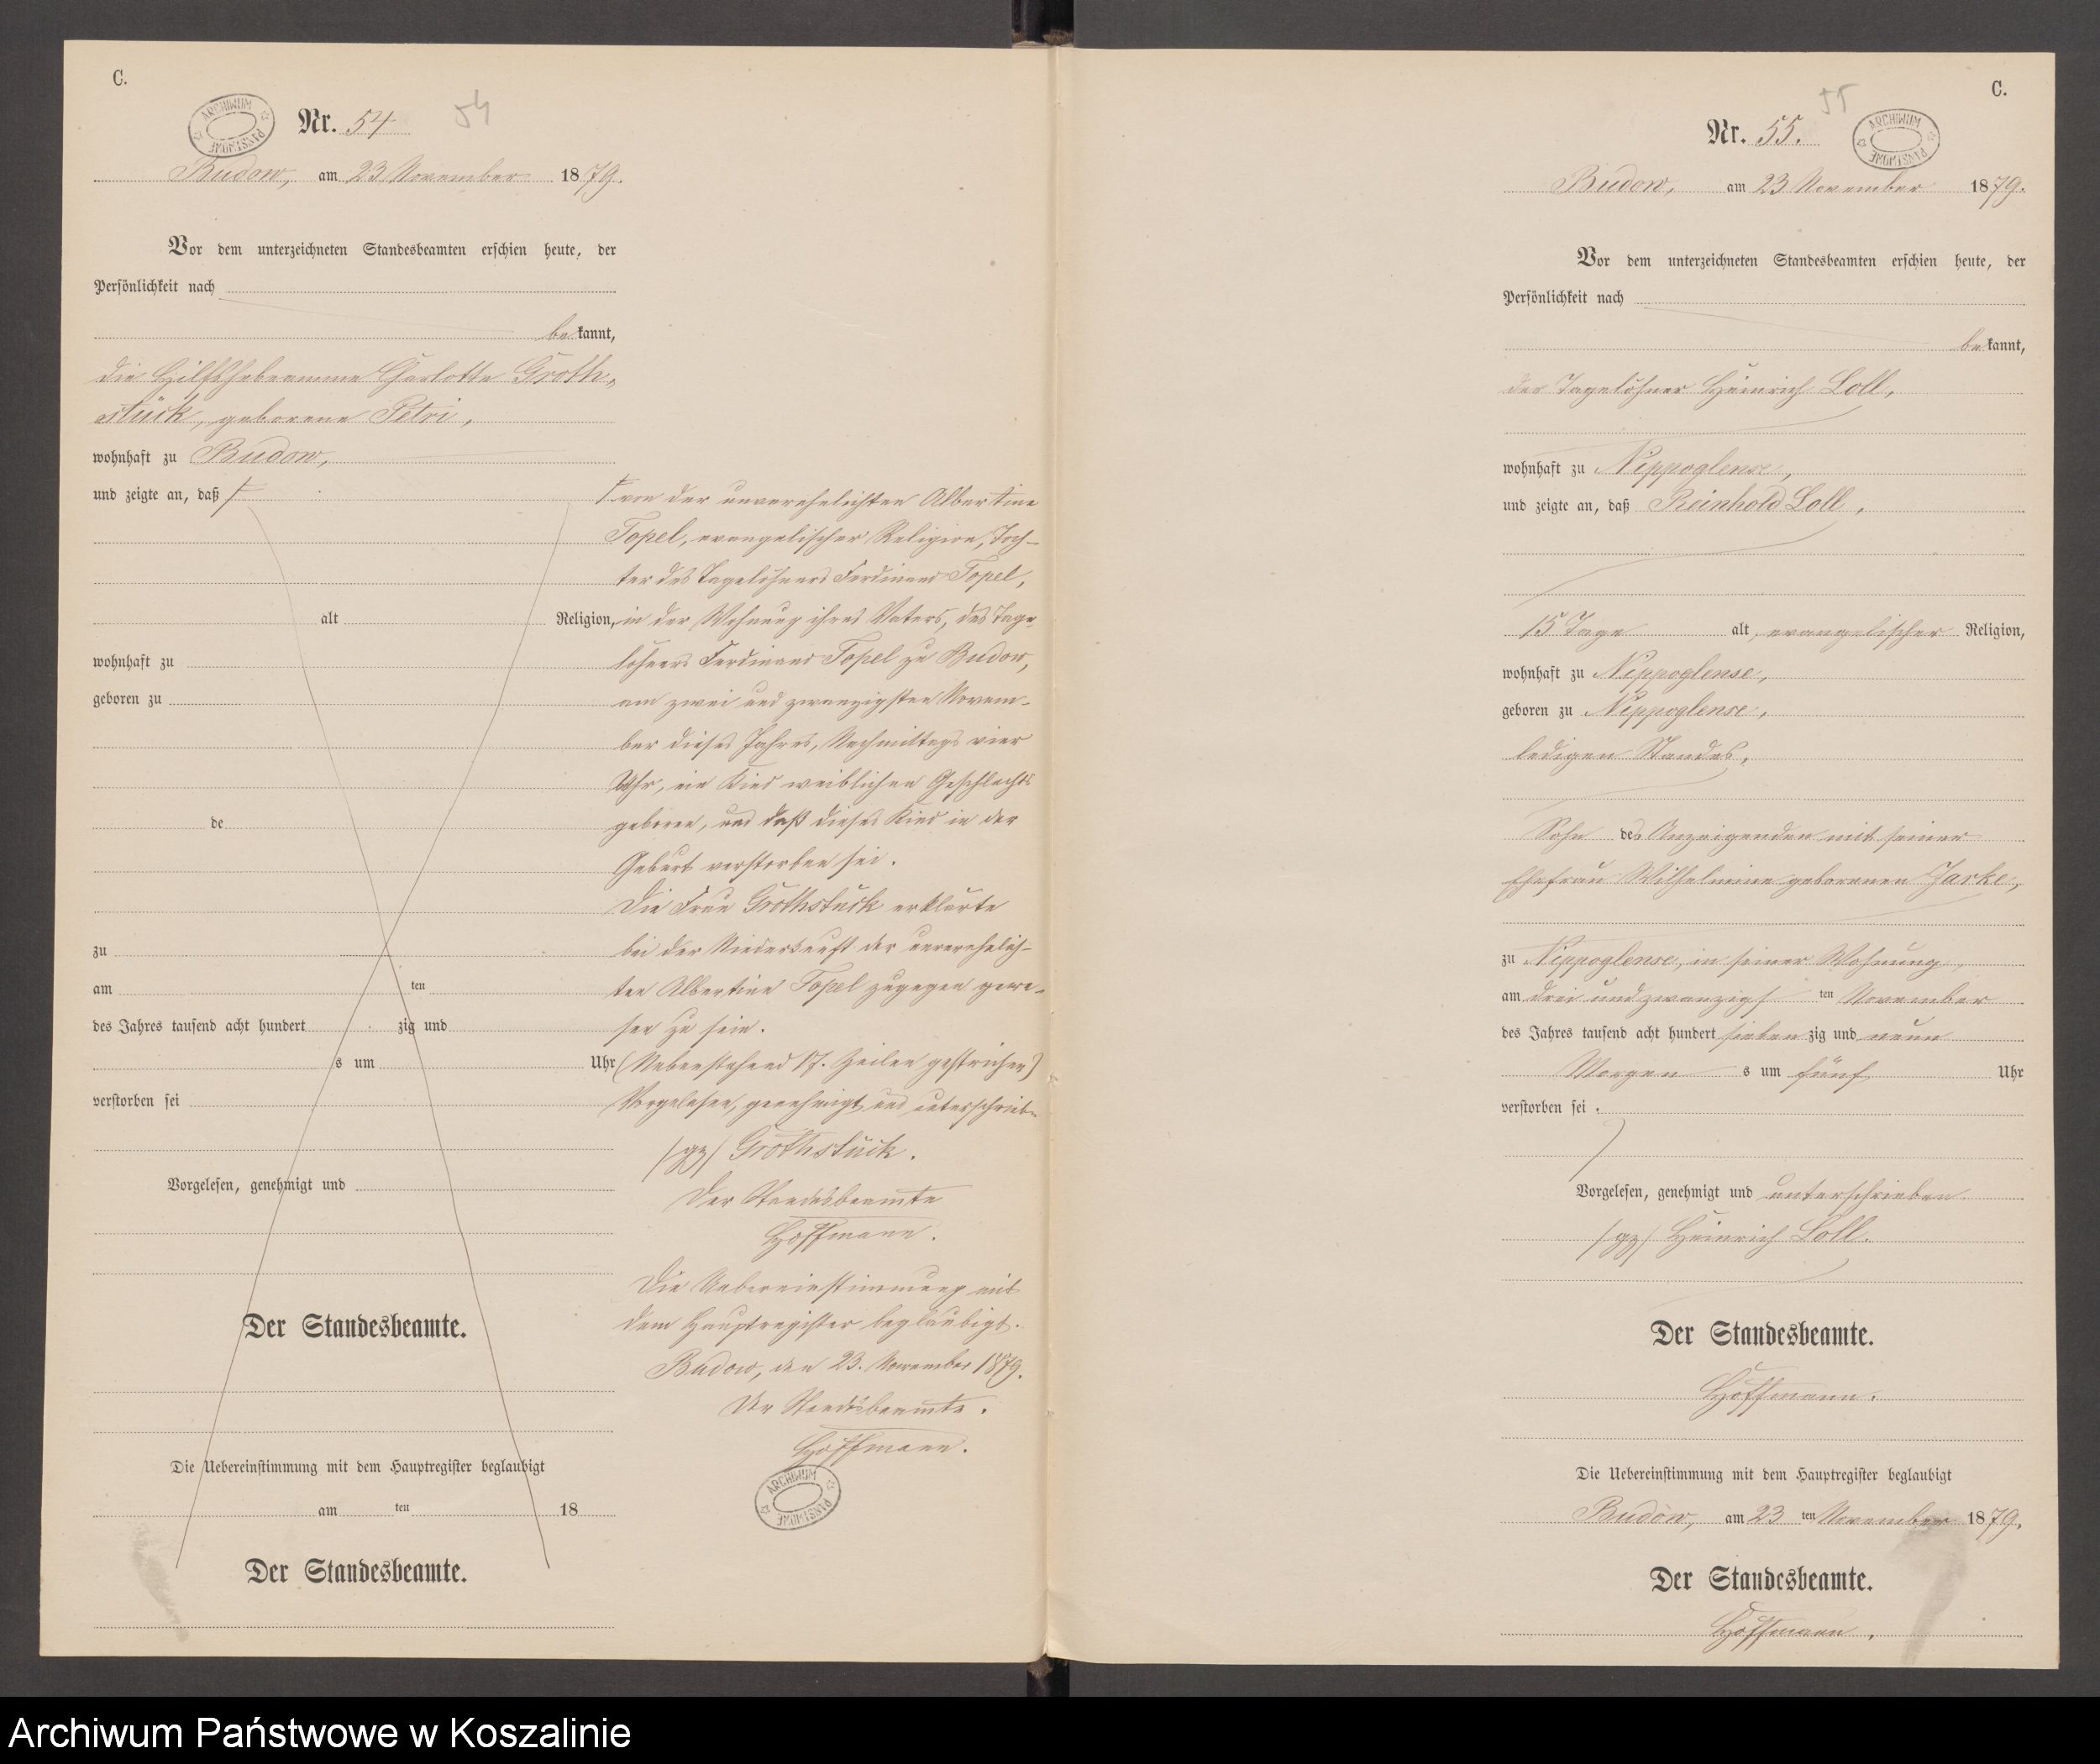 C.
ARCHIWUM PAŃSTWOWE
Nr. 54
54
Budow, am 23 November 1879.
Vor dem unterzeichneten Standesbeamten erschien heute, der
Persönlichkeit nach
bekannt,
die Hilfshebeamme Charlotte Groth-
stück, geborene Petri,
wohnhaft zu Budow,
und zeigte an, daß
alt Religion,
wohnhaft zu
geboren zu
de
zu
am ten
des Jahres tausend acht hundert zig und
s um Uhr
verstorben sei
Vorgelesen, genehmigt und
Der Standesbeamte.
Die Uebereinstimmung mit dem Hauptregister beglaubigt
am ten 18
Der Standesbeamte.
von der unverehelichten Albertine
Topel, evangelischer Religion, Toch-
ter des Tagelöhners Ferdinand Topel,
in der Wohnung ihres Vaters, des Tage-
löhners Ferdinand Topel zu Budow,
am zwei und zwanzigsten Novem-
ber dieses Jahres, Nachmittags vier
Uhr, ein Kind weiblichen Geschlechts
geboren, und daß dieses Kind in der
Geburt verstorben sei.
Die Frau Grothstück erklärte
bei der Niederkunft der unverehelich-
ten Albertine Topel zugegen gewe-
sen zu sein.
(Nebenstehend 17. Zeilen gestrichen)
Vorgelesen, genehmigt und unterschrieben
/gz/ Grothstück.
Der Standesbeamte
Hoffmann.
Die Uebereinstimmung mit
dem Hauptregister beglaubigt.
Budow, den 23. November 1879.
Der Standesbeamte.
Hoffmann.
ARCHIWUM PAŃSTWOWE
C.
55
Nr. 55.
ARCHIWUM PAŃSTWOWE
Budow, am 23 November 1879.
Vor dem unterzeichneten Standesbeamten erschien heute, der
Persönlichkeit nach
bekannt,
der Tagelöhner Heinrich Loll,
wohnhaft zu Nippoglense,
und zeigte an, daß Reinhold Loll,
15 Tage alt, evangelischer Religion,
wohnhaft zu Nippoglense,
geboren zu Nippoglense,
ledigen Standes,
Sohn des Anzeigenden mit seiner
Ehefrau Wilhelmine geborenen Jarke,
zu Nippoglense, in seiner Wohnung,
am drei und zwanzigsten November
des Jahres tausend acht hundert siebenzig und neun
Morgens um fünf Uhr
verstorben sei.
Vorgelesen, genehmigt und unterschrieben
/gz/ Heinrich Loll.
Der Standesbeamte.
Hoffmann.
Die Uebereinstimmung mit dem Hauptregister beglaubigt
Budow, am 23 ten November 1879.
Der Standesbeamte.
Hoffmann.
Archiwum Państwowe w Koszalinie